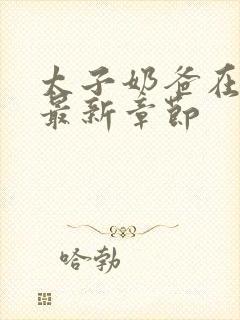 太子奶爸在
最新章節
哈勃